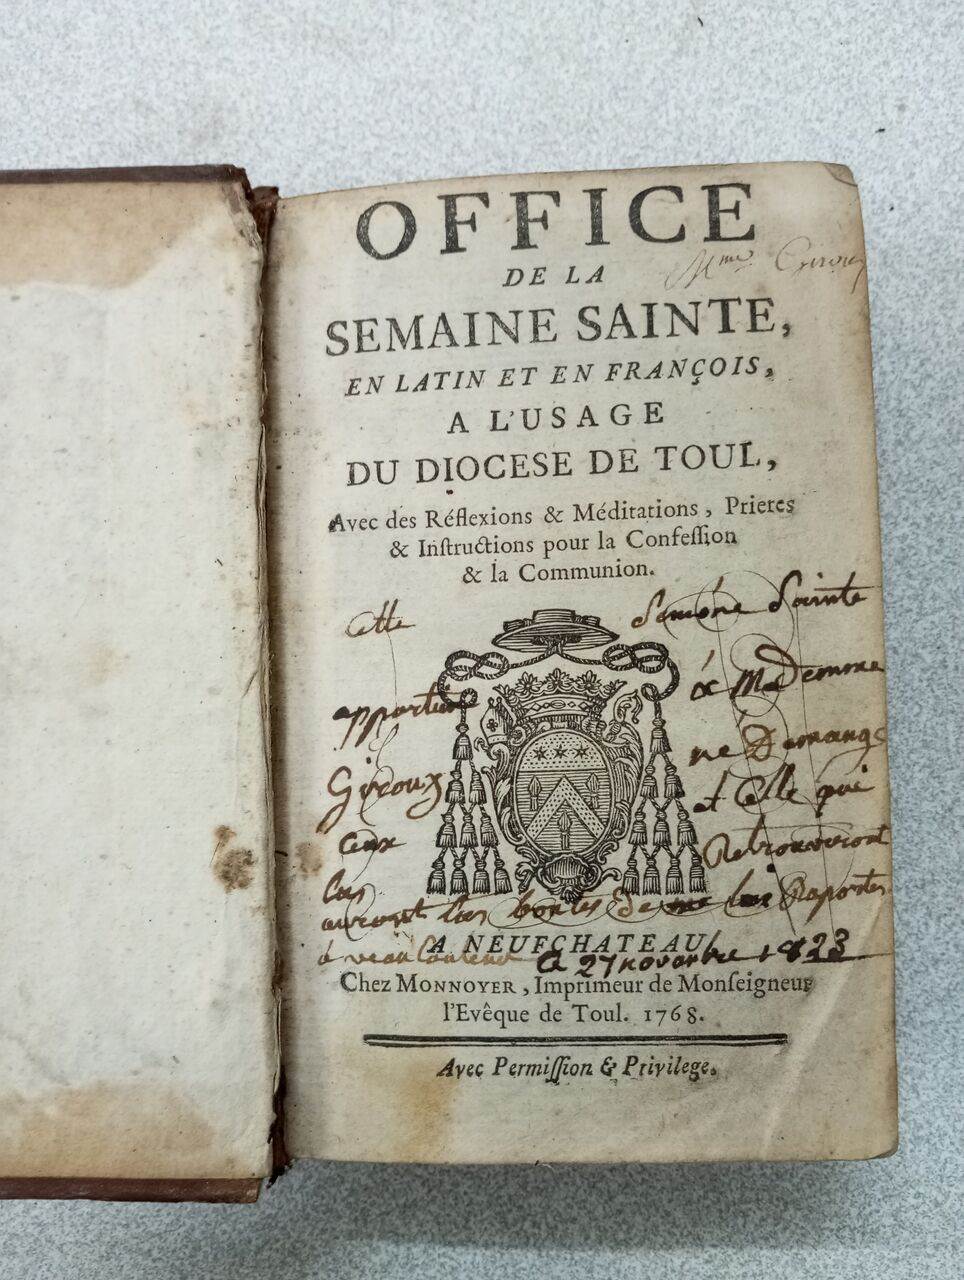 OFFICE
Mme Giroux
DE LA
SEMAINE SAINTE,
EN LATIN ET EN FRANÇOIS,
A L'USAGE
DU DIOCESE DE TOUL,
Avec des Réflexions & Méditations, Prieres
& Inſtructions pour la Confeſſion
& la Communion.
Cette Semene Sainte
appartien a Mademme
Giroux né Demange
et Celle
ceux Retrouveront
auront las bontes De me Raporter
A NEUFCHATEAU,
Ce 27 novanbre 1823
Chez MONNOYER, Imprimeur de Monſeigneur
l'Evêque de Toul. 1768.
Avec Permiſſion & Privilege.